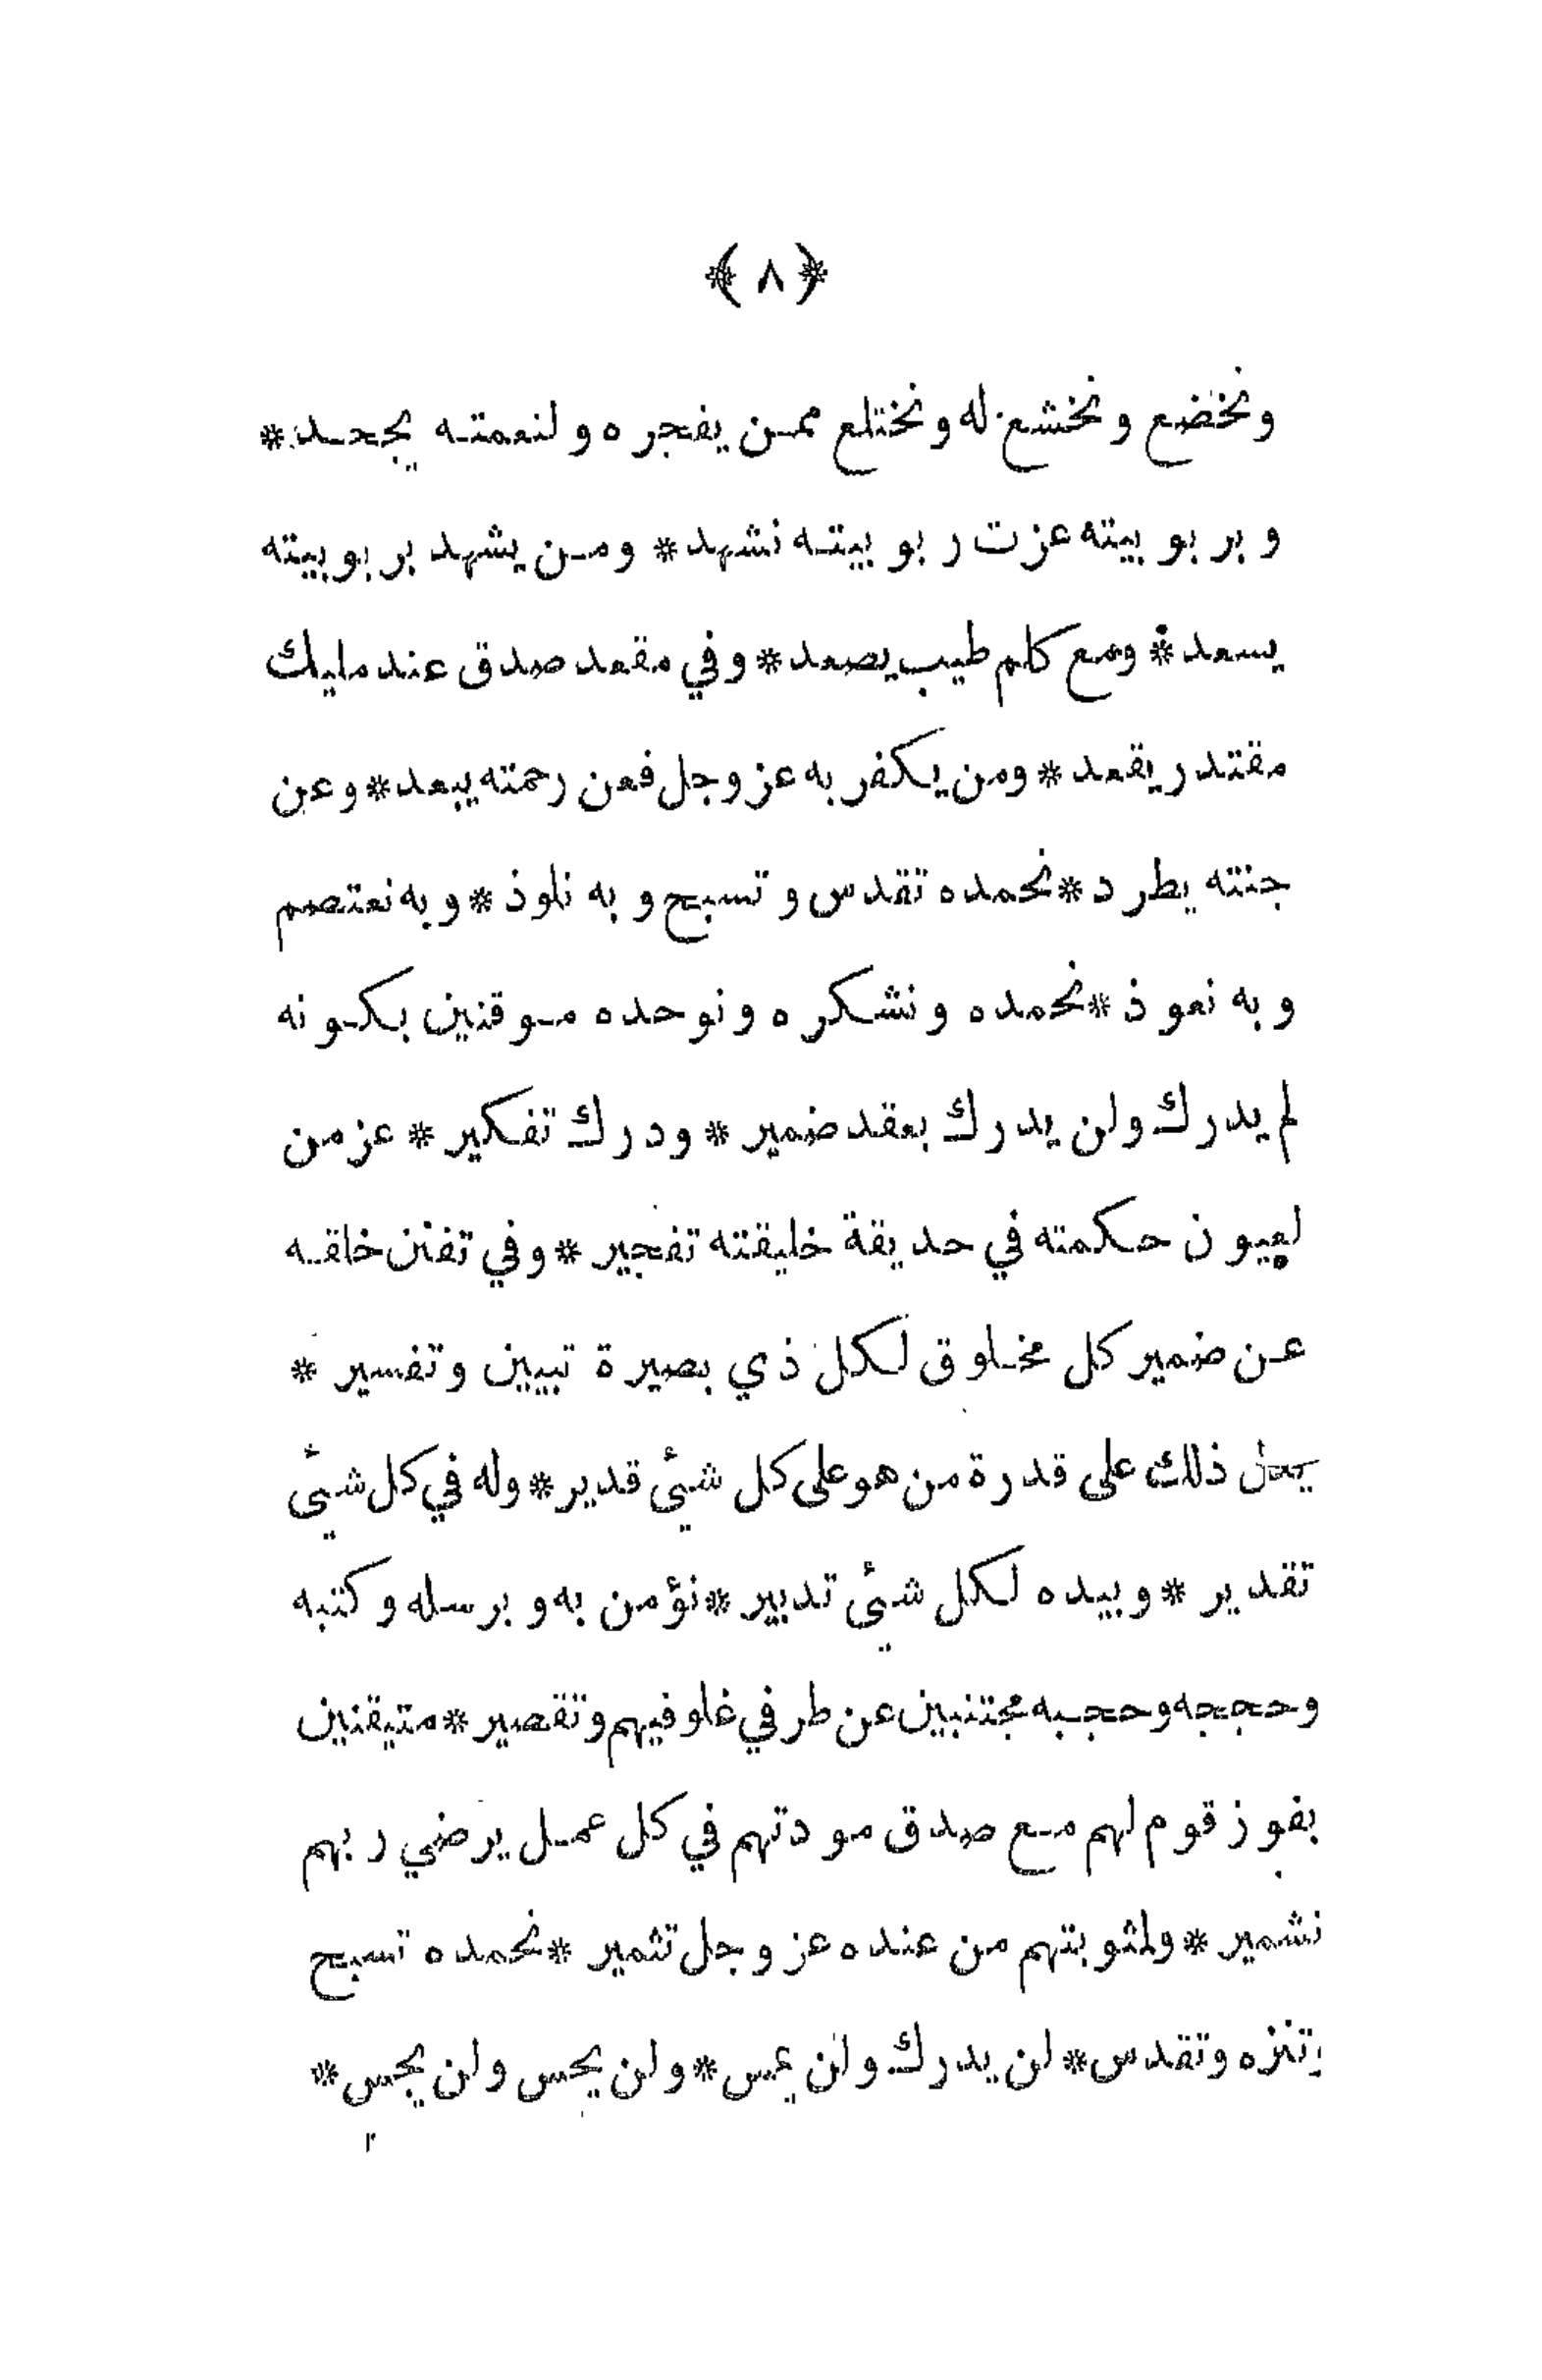 ﴿ ٨ ﴾
ونخضع ونخشع له ونختلع ممن يفجره ولنعمته يجحد *
وبربوبيته عزت ربوبيته نشهد * ومن يشهد بربوبيته
يسعد * ومع كلم طيب يصعد * وفي مقعد صدق عند مليك
مقتدر يقعد * ومن يكفر به عز وجل فعن رحمته يبعد * وعن
جنته يطرد * نحمده تقدس وتسبح وبه نلوذ * وبه نعتصم
وبه نعوذ * نحمده ونشكره ونوحده موقنين بكونه
لم يدرك ولن يدرك بعقد ضمير * ودرك تفكير * عز من
لعيون حكمته في حديقة خليقته تفجير * وفي تفنن خلقه
عن ضمير كل مخلوق لكل ذي بصيرة تبيين وتفسير *
ذلك على قدرة من هو على كل شيئ قدير * وله في كل شيئ
تقدير * وبيده لكل شيئ تدبير * نؤمن به وبرسله وكتبه
وحججه وحجبه مجتنبين عن طرفي غلو فيهم وتقصير * متيقنين
بفوز قوم لهم مع صدق مودتهم في كل عمل يرضي ربهم
تشمير * ولمثوبتهم من عنده عز وجل تثمير * نحمده تسبح
وتنزه وتقدس * لن يدرك ولن يمس * ولن يحس ولن يجس *
٢